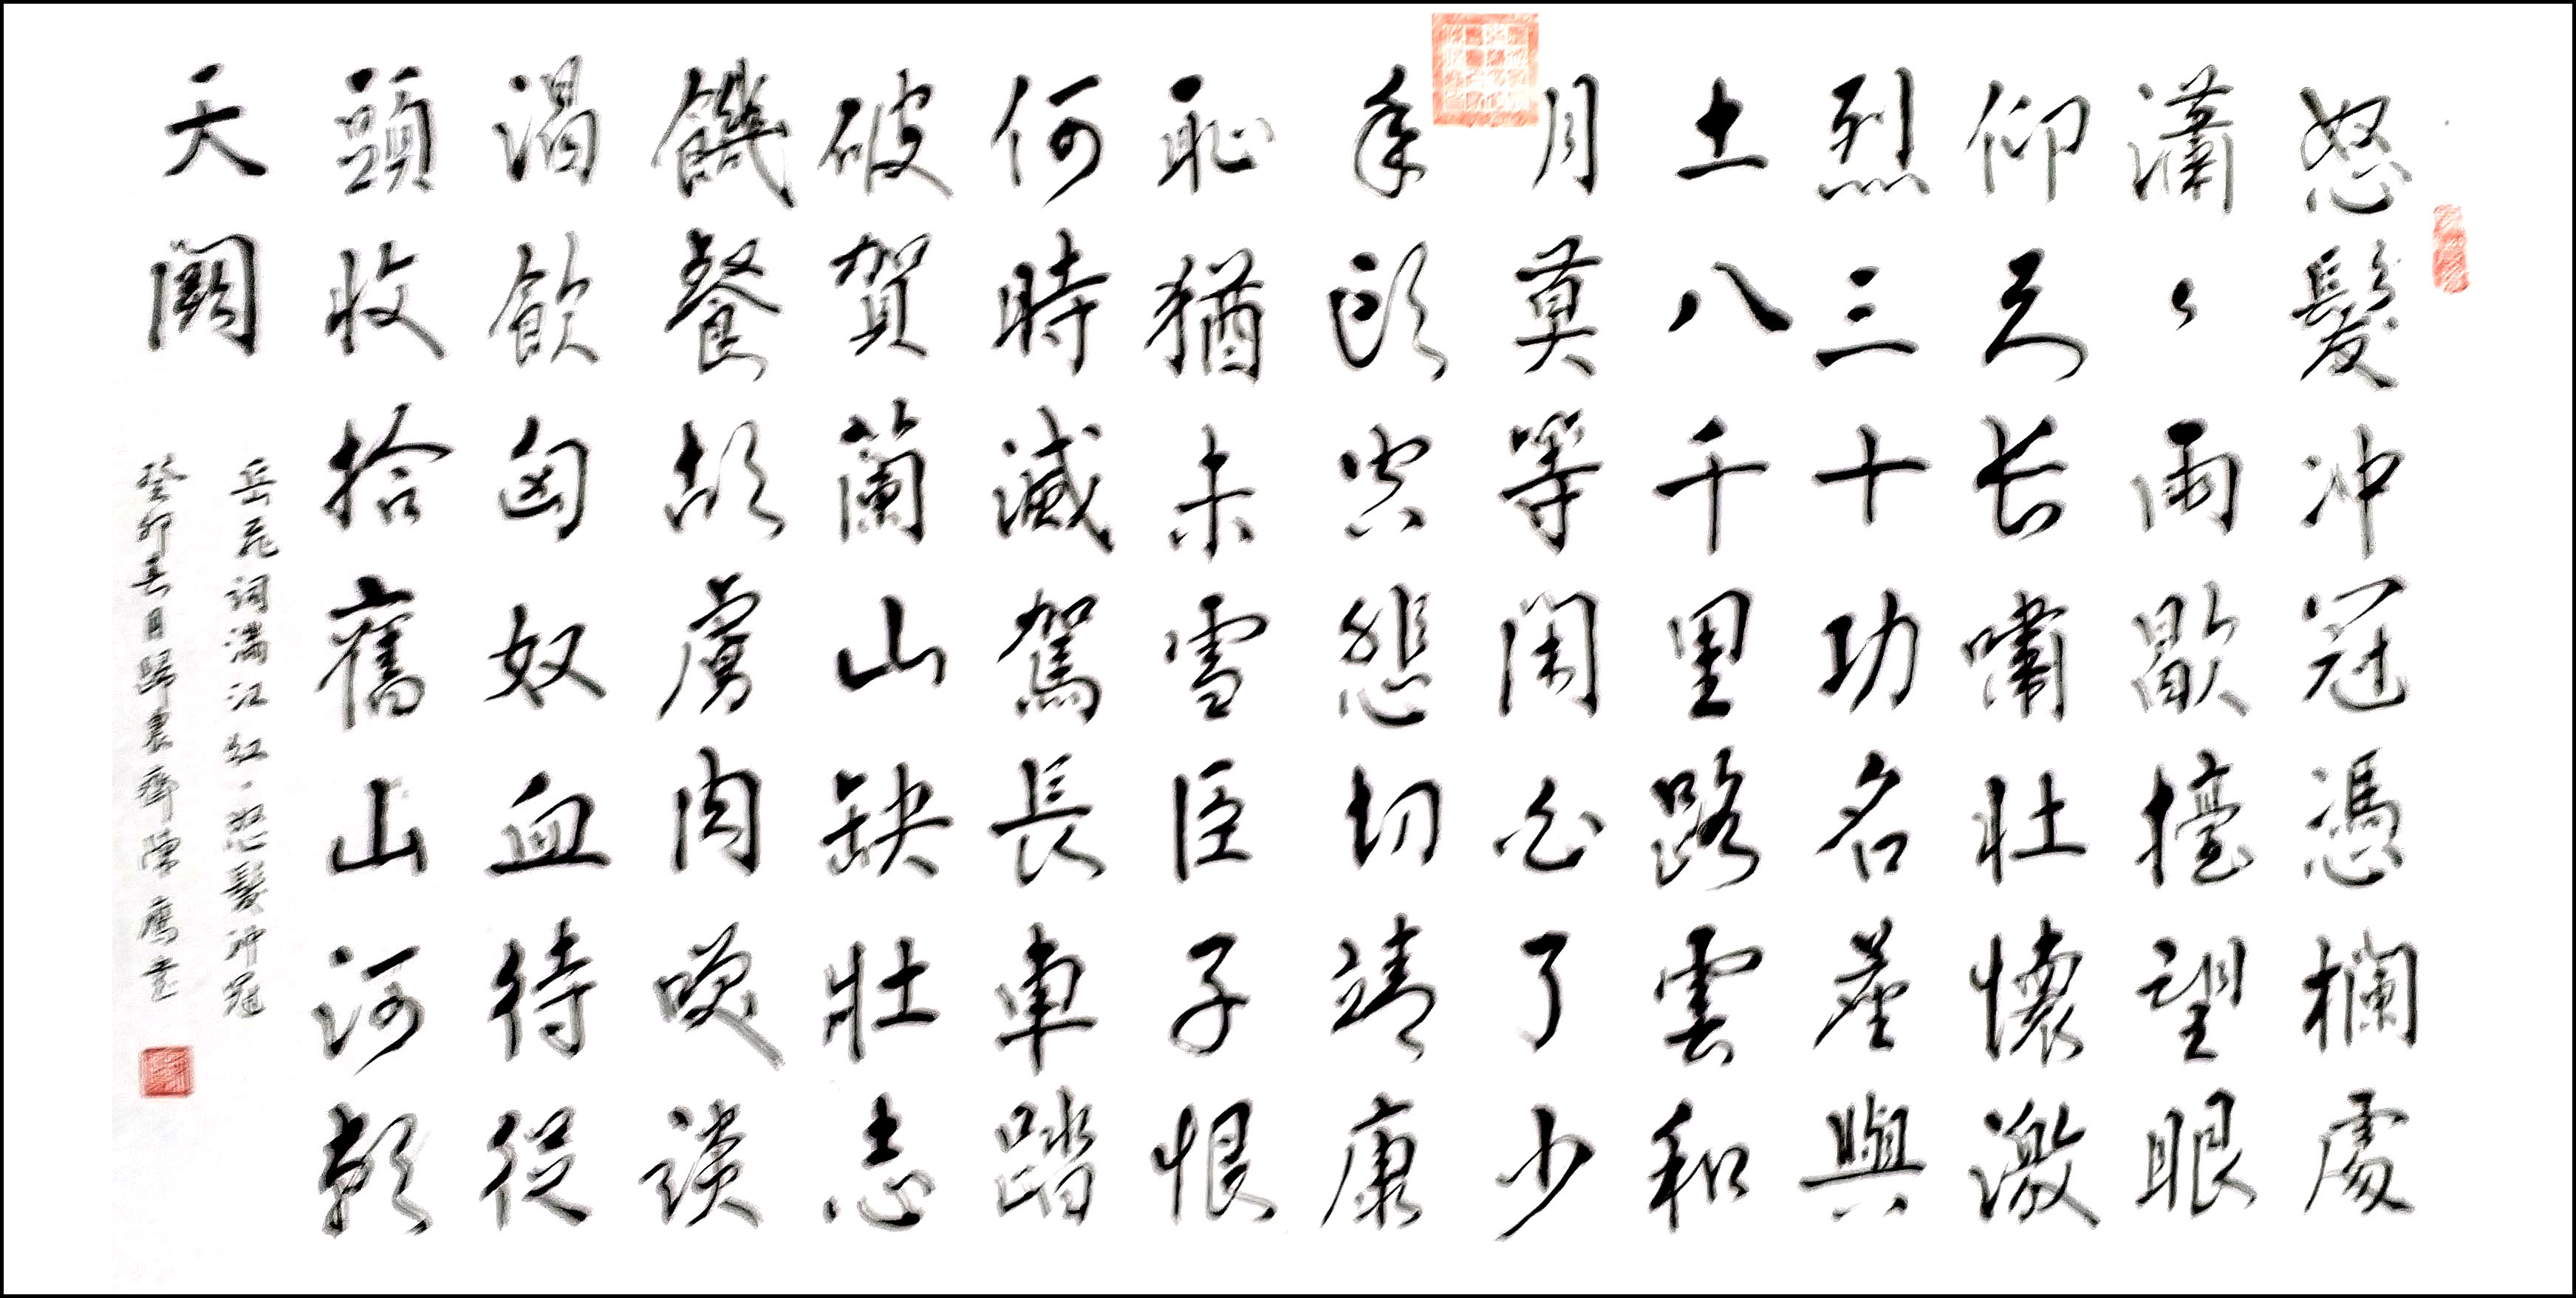 怒髮冲冠憑欄處
瀟〻雨歇擡望眼
仰天长嘯壯懷激
烈三十功名塵與
土八千里路雲和
月莫等閑白了少
年頭空悲切靖康
恥猶未雪臣子恨
何時滅駕長車踏
破賀蘭山缺壯志
饑餐胡虜肉咲談
渴飲匈奴血待從
頭收拾舊山河朝
天闕
岳飛詞滿江紅·怒髮冲冠
癸卯春日歸農齋陳鷹書